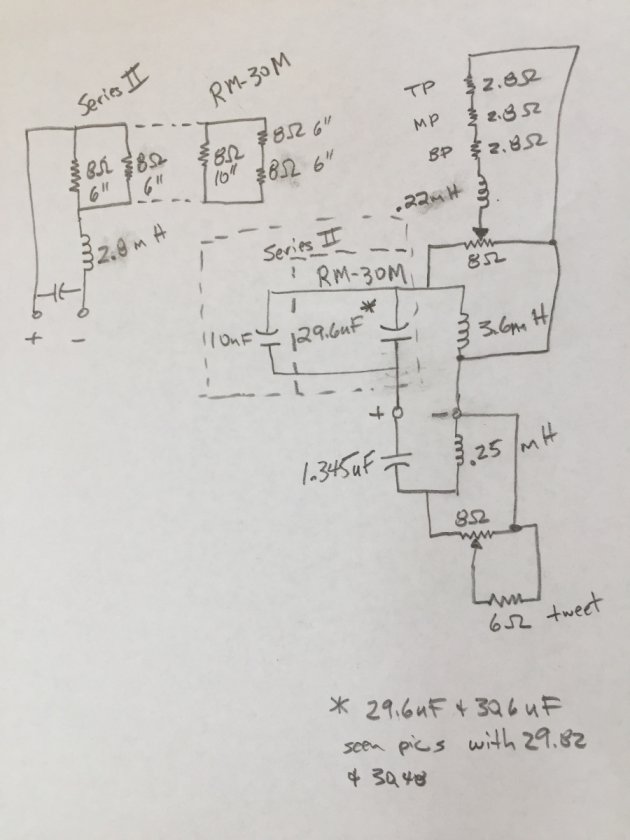 Series II
RM-30M
TP 2.8Ω
MP 2.8Ω
BP 2.8Ω
8Ω 6"
8Ω 6"
8Ω 10"
8Ω 6"
8Ω 6"
.22mH
2.0 mH
8Ω
Series II
RM-30M
110uF
29.6uF *
3.6mH
+ -
+ -
.25 mH
1.345uF
8Ω
6Ω tweet
* 29.6uF & 30.6uF
seen pics with 29.82
& 30.48